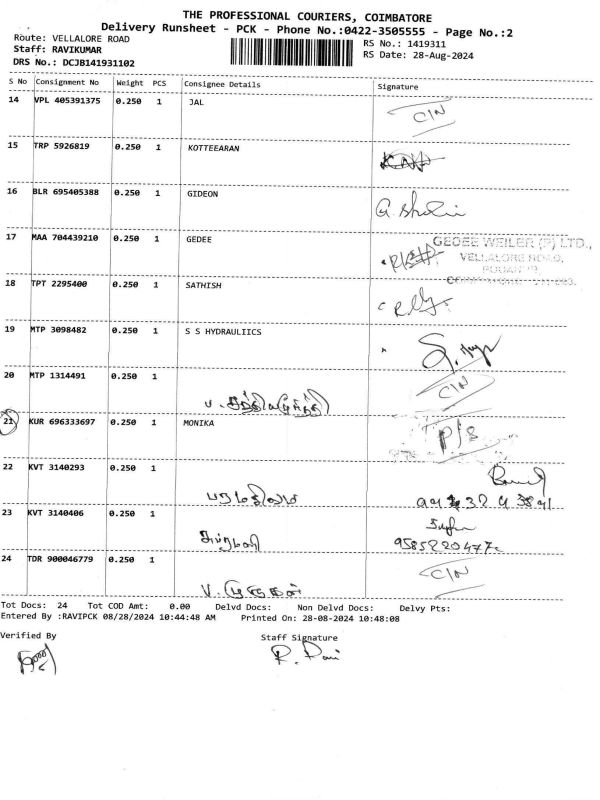 THE PROFESSIONAL COURIERS, COIMBATORE
Delivery Runsheet - PCK - Phone No.:0422-3505555 - Page No.:2
Route: VELLALORE ROAD
RS No.: 1419311
Staff: RAVIKUMAR
RS Date: 28-Aug-2024
DRS No.: DCJB141931102
S No Consignment No Weight PCS Consignee Details Signature
14 VPL 405391375 0.250 1 JAL C/N
15 TRP 5926819 0.250 1 KOTTEEARAN
16 BLR 695405388 0.250 1 GIDEON
17 MAA 704439210 0.250 1 GEDEE
GEDEE WEILER (P) LTD.,
VELLALORE ROAD,
18 TPT 2295400 0.250 1 SATHISH
19 MTP 3098482 0.250 1 S S HYDRAULIICS
20 MTP 1314491 0.250 1 C/N
21 KUR 696333697 0.250 1 MONIKA P/S
22 KVT 3140293 0.250 1
23 KVT 3140406 0.250 1
24 TDR 900046779 0.250 1 V. முருகன் C/N
Tot Docs: 24 Tot COD Amt: 0.00 Delvd Docs: Non Delvd Docs: Delvy Pts:
Entered By :RAVIPCK 08/28/2024 10:44:48 AM Printed On: 28-08-2024 10:48:08
Verified By Staff Signature